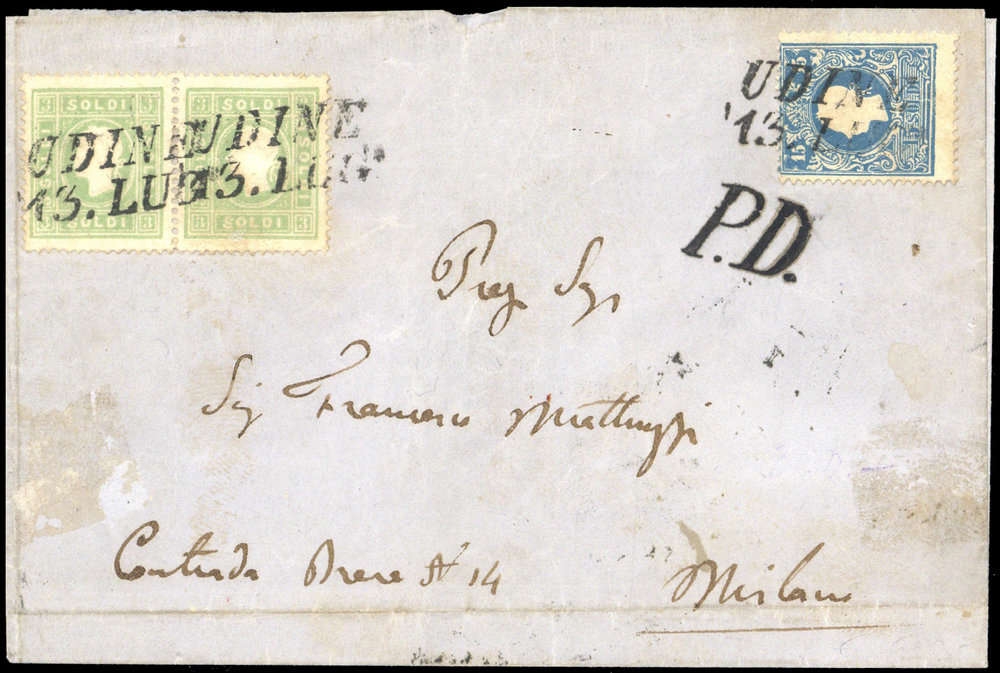 3 SOLDI 3
3 SOLDI 3
UDINE
13. LUG
3 SOLDI 3
3 SOLDI 3
UDINE
13. LUG
15
15
UDINE
13. L
P.D.
Preg Sigr
Sig Francesco
Contrada Brera N 14
Milano